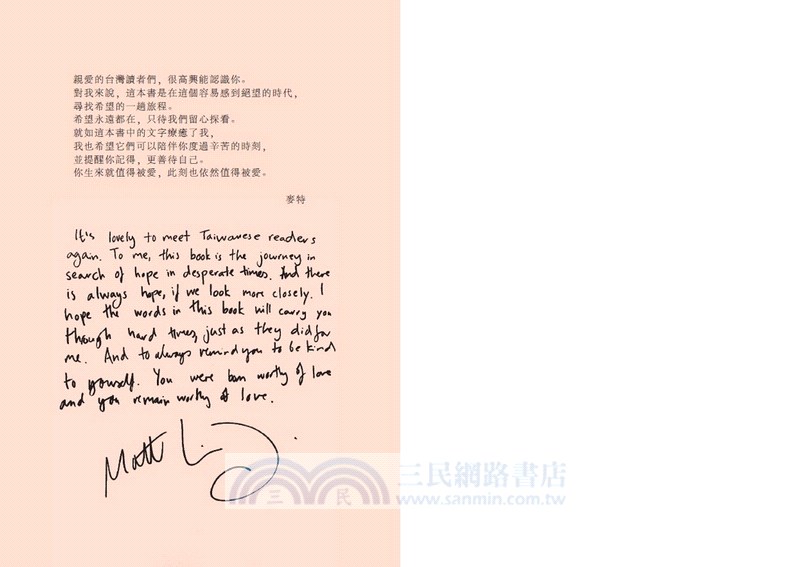 親愛的台灣讀者們，很高興能認識你。
對我來說，這本書是在這個容易感到絕望的時代，
尋找希望的一趟旅程。
希望永遠都在，只待我們留心探看。
就如這本書中的文字療癒了我，
我也希望它們可以陪伴你度過辛苦的時刻，
並提醒你記得，更善待自己。
你生來就值得被愛，此刻也依然值得被愛。
麥特
It's lovely to meet Taiwanese readers
again. To me, this book is the journey in
search of hope in desperate times. And there
is always hope, if we look more closely. I
hope the words in this book will carry you
though hard times, just as they did for
me. And to always remind you to be kind
to yourself. You were born worthy of love
and you remain worthy of love.
Matt
三民網路書店
三 民
www.sanmin.com.tw